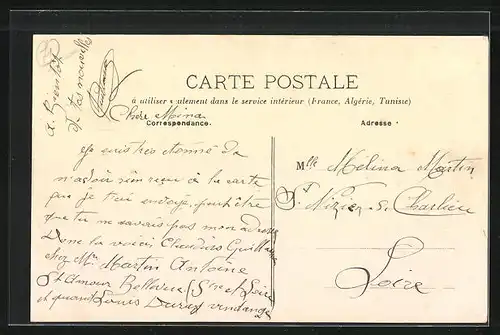 CARTE POSTALE
à utiliser seulement dans le service intérieur (France, Algérie, Tunisie)
Correspondance.
Adresse
A Bientot
de tes nouvelles
Chère Mina
Je suis très étonné de
n'avoir rien reçu à la carte
que je t'ai envoyé, peut être
que tu ne savais pas mon adresse
Donc la voici Claudius Guillaume
chez Mr Martin Antoine
St Amour Bellevue (Sne et Loire
et quand Louis vendange
Mlle Mélina Martin
St Nizier s. Charlieu
Loire